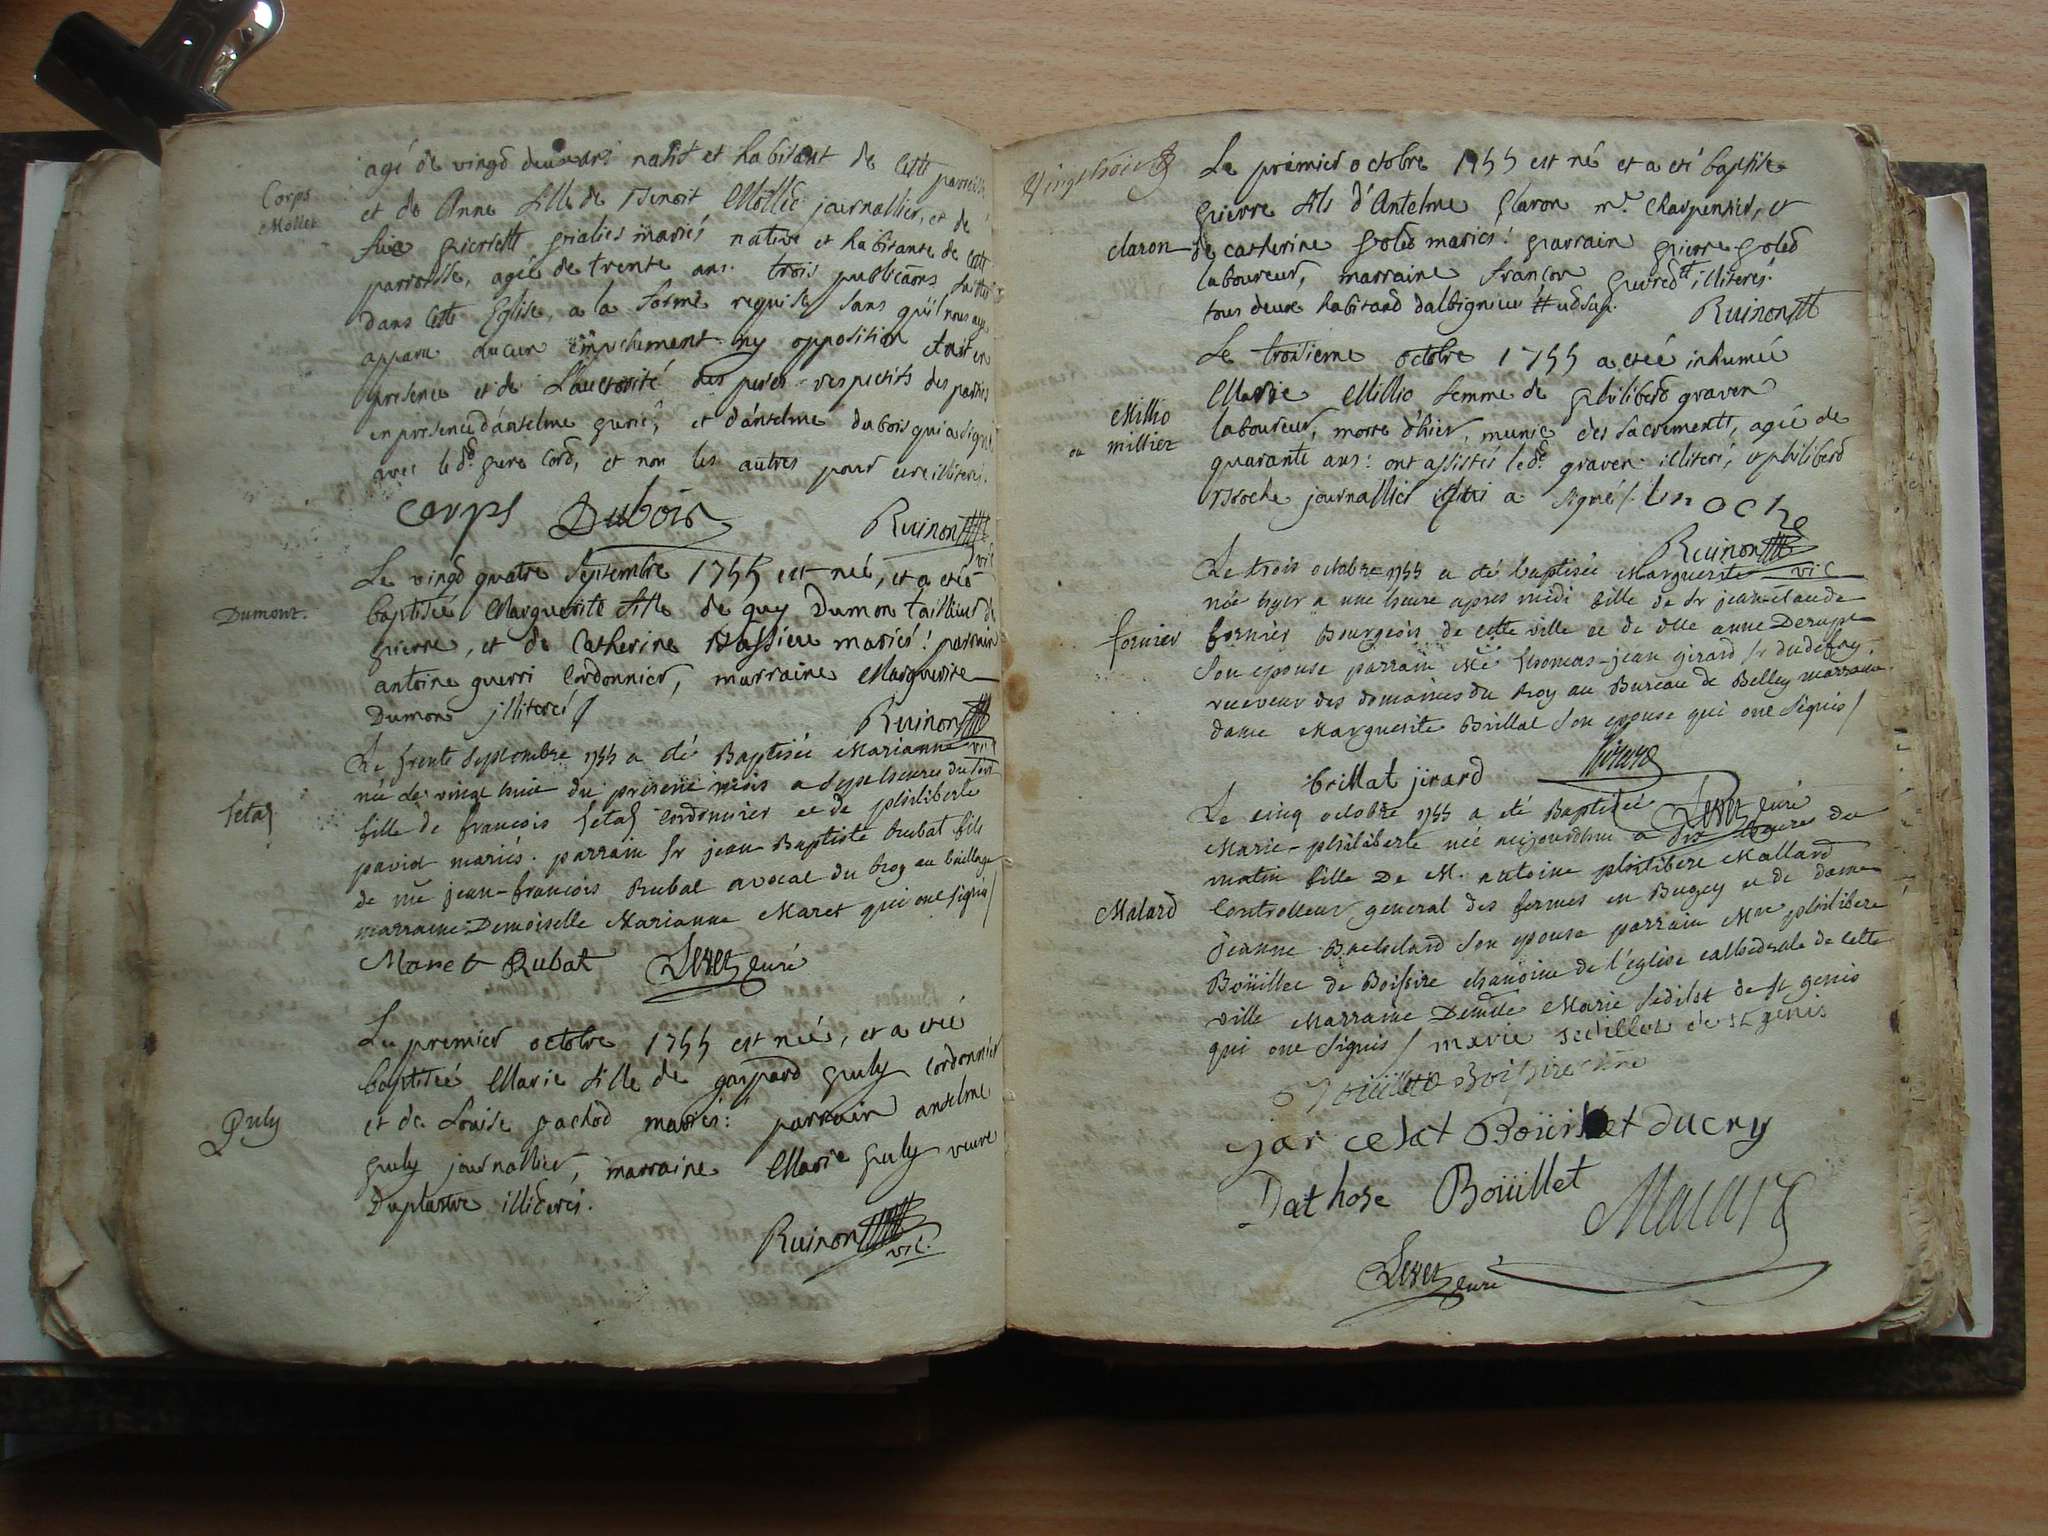 Corps
Mollet
agé de vingd deux ans natif et habitant de cette parroisse
et de Anne fille de Benoit Mollie journallier, et de
feüe pierrette mariés native et habitante de cette
parroisse, agée de trente ans. trois publicaons faittes
dans cette Eglise, a la forme requise, sans qu'il nous aye
apparu aucun empechement ny opposition
presence et de L'auctorité des peres respectifs des parties
en presence d'anselme et d'anselme dubois qui a signé
avec le dt pere Cord, et non les autres pour etre illiterés.
Corps Dubois Ruinon
vic
Dumont.
Le vingd quatre Septembre 1755 est née, et a eté
baptisée Marguerite fille de guy Dumon tailleur de
pierre, et de Catherine mariés: parrain
antoine guerri Cordonnier, marraine Marguerite
Dumon illiterés
Ruinon
vic
Le trente Septembre 1755 a eté Baptisée Marianne
née le vingt huit du present mois a Sept heures du soir
fille de francois Cordonnier et de philiberte
paviot mariés. parrain Sr jean Baptiste Rubat fils
de me jean-francois Rubat avocat du Roy au bailliage
marraine Demoiselle Marianne Maret qui ont signé
Maret Rubat curé
Puly
Le premier octobre 1755 est née, et a eté
baptisée Marie fille de gaspard puly cordonnier
et de Louise pachod mariés: parrain anselme
puly journallier, marraine Marie puly veuve
Duplastre illiterés.
Ruinon
vic.
Vingt
Claron
Le premier octobre 1755 est né et a eté baptisé
pierre fils d'Antelme Claron me Charpentier, et
de Catherine goled mariés: parrain pierre goled
laboureur, marraine françon illiterés.
tous deux habitand dalbignieu
Ruinon
Millio
ou millier
Le troisieme octobre 1755 a etée inhumée
Marie Millio femme de philiberd graven
laboureur, morte d'hier, munie des Sacrements, agée de
quarante ans: ont assistés le dt graven illiteré, et philiberd
Broche journallier qui a signé
Ruinon
vic
fornier
Le trois octobre 1755 a eté baptisée Marguerite
née hyer a une heure apres midi fille de Sr jean claude
fornier Bourgeois de cette ville et de dlle anne
Son epouse parrain Me thomas-jean girard
receveur des domaines du Roy au Bureau de Belley marraine
dame Marguerite Brillat Son epouse qui ont Signés
brillat jirard Girard
curé
Malard
Le cinq octobre 1755 a eté Baptisée
Marie-philiberte née aujourdhui a dix heures du
matin fille De M. antoine philibert Mallard
Controlleur general des fermes en Bugey et de dame
Jeanne Son epouse parrain Mre philibert
Boüillet de Boissire chanoine de l'eglise cathedrale de cette
ville Marraine Demlle Marie Sedillot de St genis
qui ont Signés marie sedillot de St genis
Boüillet Boissire
Boüillet ducry
Dathose Boüillet Malard
curé